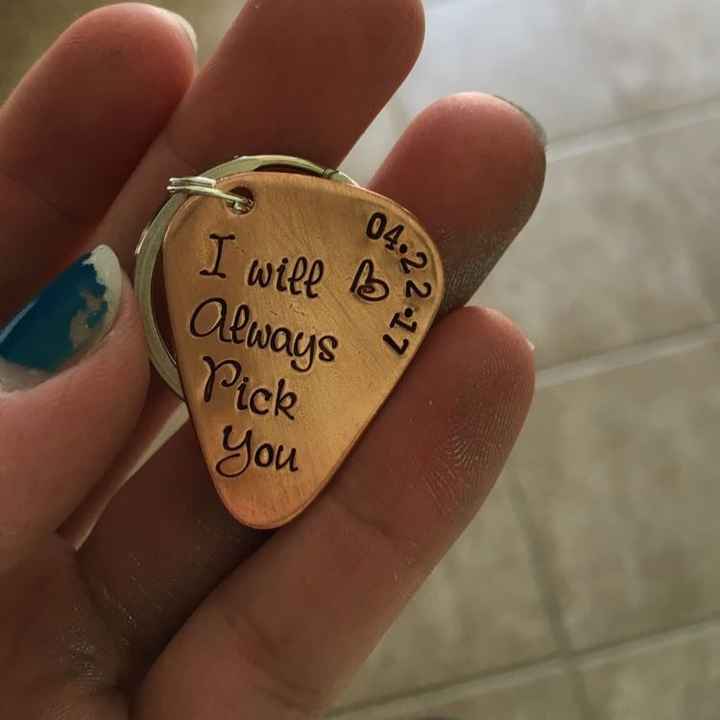 I will
Always
Pick
You
04.22.17